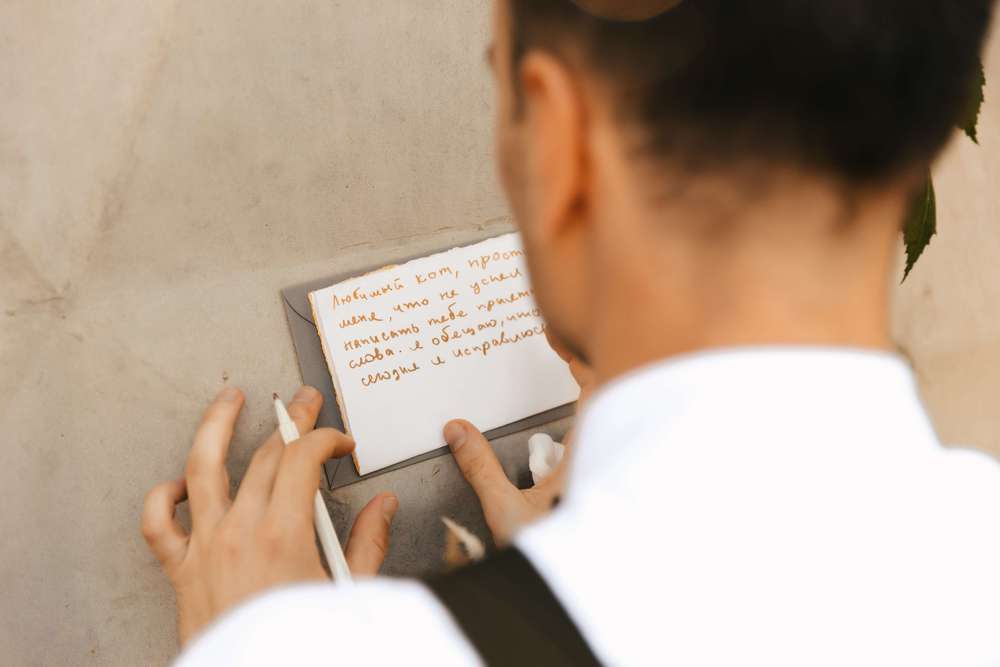 Любимый кот, прост
меня, что не успел
написать тебе прият
слова. Я обещаю, что
сегодня я исправлюс